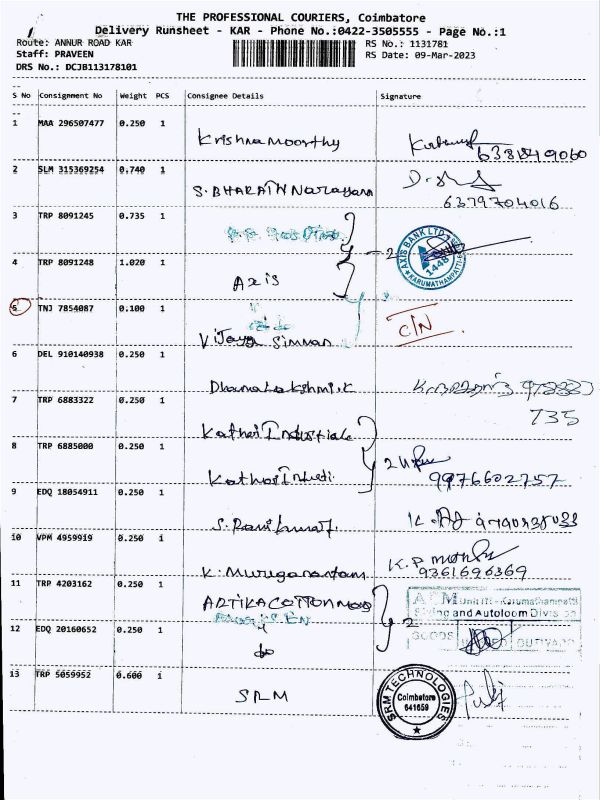 THE PROFESSIONAL COURIERS, Coimbatore
Delivery Runsheet - KAR - Phone No.:0422-3505555 - Page No.:1
Route: ANNUR ROAD KAR
RS No.: 1131781
Staff: PRAVEEN
RS Date: 09-Mar-2023
DRS No.: DCJB113178101
S No Consignment No Weight PCS Consignee Details Signature
1 MAA 296507477 0.250 1
Krishnamoorthy
2 SLM 315369254 0.740 1
S. BHARATH Narayana
6379704016
3 TRP 8091245 0.735 1
2
AXIS BANK LTD
1448
KARUMATHAMPATTI
4 TRP 8091248 1.020 1
Axis
5 TNJ 7854087 0.100 1
C/N
Vijaya Simman
6 DEL 910140938 0.250 1
Dhanalakshmi. K
735
7 TRP 6883322 0.250 1
Kathoi Industials
8 TRP 6885000 0.250 1
2
Kathoi
9976602757
9 EDQ 18054911 0.250 1
10 VPM 4959919 0.250 1
K. Muruganantam
K. P
9361696369
11 TRP 4203162 0.250 1
ARTIKA COTTON
Unit III - Karumathampatti
and Autoloom Division
GOODS
2
12 EDQ 20160652 0.250 1
do
13 TRP 5059952 0.600 1
SRM
SRM TECHNOLOGIES
Coimbatore
641659